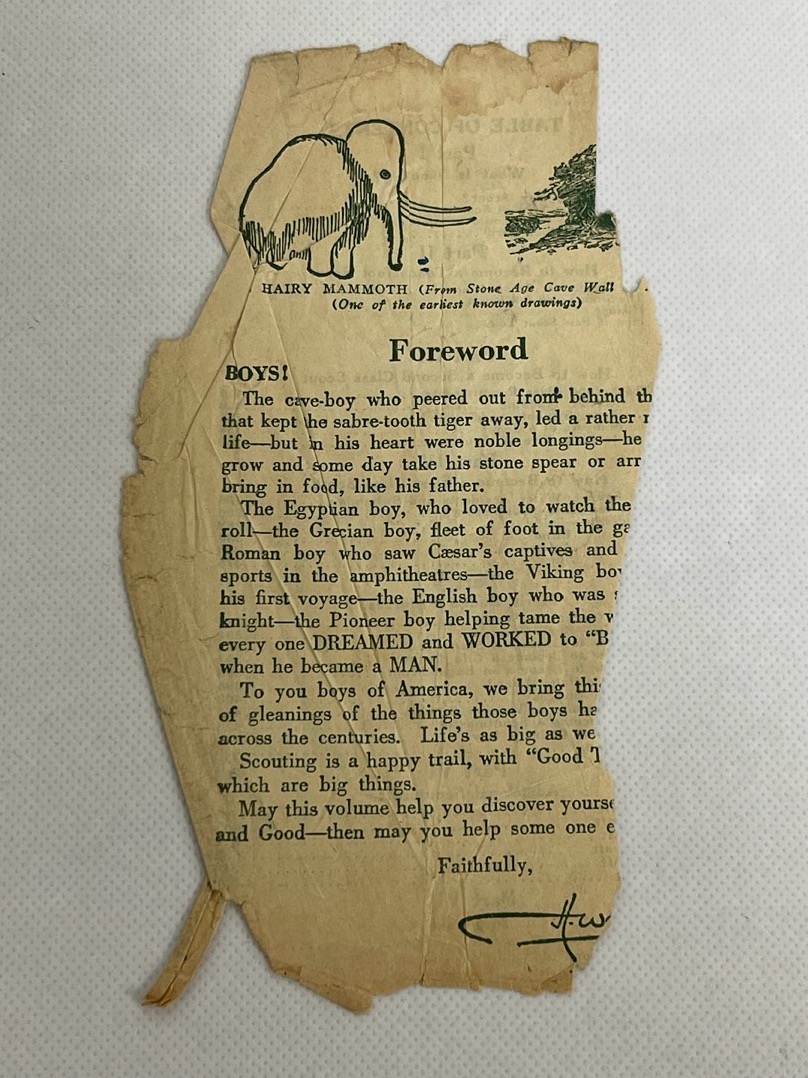 HAIRY MAMMOTH (From Stone Age Cave Wall
(One of the earliest known drawings)
Foreword
BOYS!
The cave-boy who peered out from behind th
that kept the sabre-tooth tiger away, led a rather r
life—but in his heart were noble longings—he
grow and some day take his stone spear or arr
bring in food, like his father.
The Egyptian boy, who loved to watch the
roll—the Grecian boy, fleet of foot in the ga
Roman boy who saw Cæsar's captives and
sports in the amphitheatres—the Viking boy
his first voyage—the English boy who was
knight—the Pioneer boy helping tame the w
every one DREAMED and WORKED to "B
when he became a MAN.
To you boys of America, we bring this
of gleanings of the things those boys ha
across the centuries. Life's as big as we
Scouting is a happy trail, with "Good T
which are big things.
May this volume help you discover yourse
and Good—then may you help some one e
Faithfully,
H.W